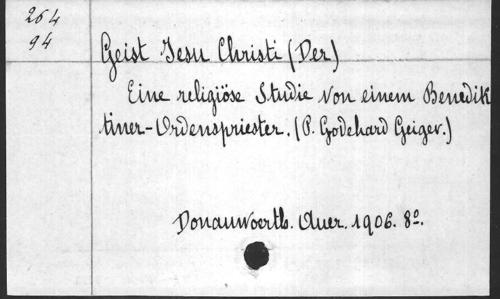 264
94
Geist Jesu Christi (Der)
Eine religiöse Studie von einem Benedik
tiner-Ordenspriester. (P. Godehard Geiger.)
Donauwoerth. Auer. 1906. 8º.